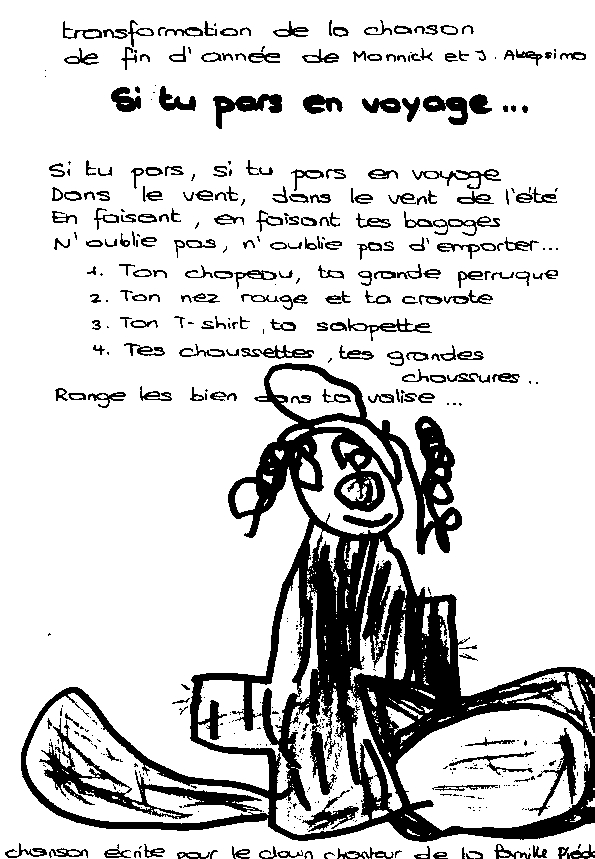 transformation de la chanson
de fin d'année de Monnick et J. Akepsimo
Si tu pars en voyage...
Si tu pars, si tu pars en voyage
Dans le vent, dans le vent de l'été
En faisant, en faisant tes bagages
N'oublie pas, n'oublie pas d'emporter...
1. Ton chapeau, ta grande perruque
2. Ton nez rouge et ta cravate
3. Ton T-shirt, ta salopette
4. Tes chaussettes, tes grandes
chaussures..
Range les bien dans ta valise ...
chanson écrite pour le clown chanteur de la famille